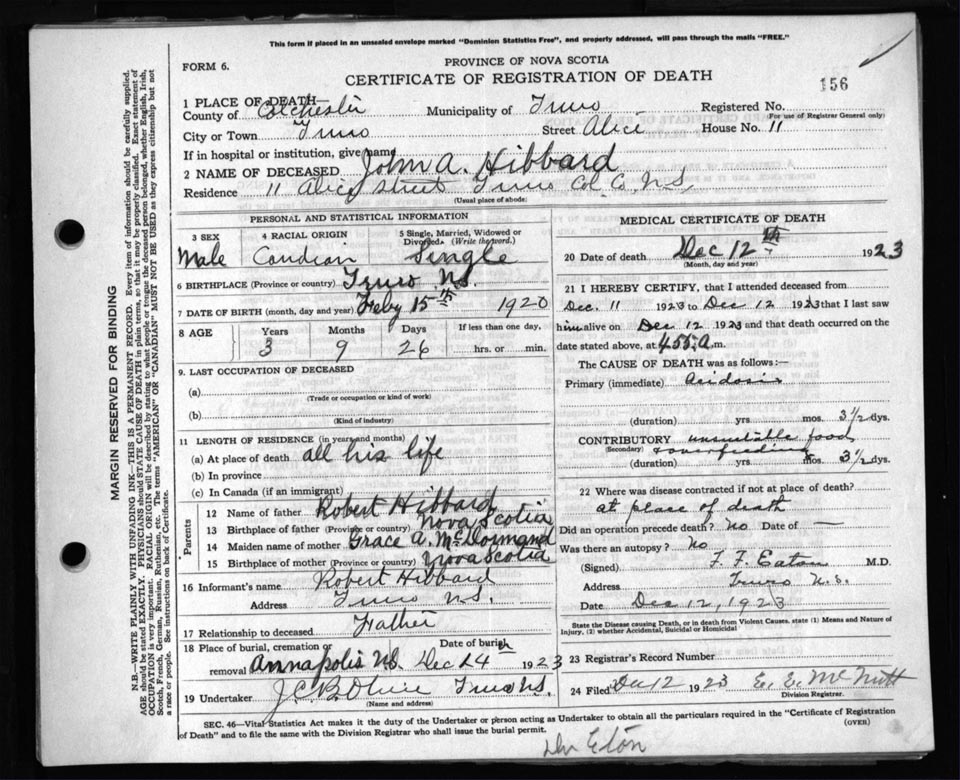 This form if placed in an unsealed envelope marked "Dominion Statistics Free", and properly addressed, will pass through the mails "FREE."
FORM 6.
PROVINCE OF NOVA SCOTIA
CERTIFICATE OF REGISTRATION OF DEATH
156
1 PLACE OF DEATH—
County of Colchester Municipality of Truro Registered No.
(For use of Registrar General only)
City or Town Truro Street Alice House No. 11
If in hospital or institution, give name
2 NAME OF DECEASED John A. Hibbard
Residence 11 Alice Street Truro Col. Co. N.S.
(Usual place of abode)
PERSONAL AND STATISTICAL INFORMATION
3 SEX 4 RACIAL ORIGIN 5 Single, Married, Widowed or Divorced. (Write the word.)
Male Candian Single
6 BIRTHPLACE (Province or country) Truro N.S.
7 DATE OF BIRTH (month, day and year) Feby 15th 1920
8 AGE Years Months Days If less than one day,
3 9 26 hrs. or min.
9. LAST OCCUPATION OF DECEASED
(a)
(Trade or occupation or kind of work)
(b)
(Kind of industry)
11 LENGTH OF RESIDENCE (in years and months)
(a) At place of death all his life
(b) In province
(c) In Canada (if an immigrant)
Parents
12 Name of father Robert Hibbard
13 Birthplace of father (Province or country) Nova Scotia
14 Maiden name of mother Grace A. McDormand
15 Birthplace of mother (Province or country) Nova Scotia
16 Informant's name Robert Hibbard
Address Truro N.S.
17 Relationship to deceased Father
18 Place of burial, cremation or removal Annapolis N.S. Date of burial Dec 14th 1923
19 Undertaker Truro N.S.
(Name and address)
MEDICAL CERTIFICATE OF DEATH
20 Date of death Dec 12th 1923
(Month, day and year)
21 I HEREBY CERTIFY, that I attended deceased from
Dec. 11 1923 to Dec 12 1923 that I last saw
him alive on Dec 12 1923 and that death occurred on the
date stated above, at 4.55 A.m.
The CAUSE OF DEATH was as follows:—
Primary (immediate) Acidosis
(duration) yrs mos. 3 1/2 dys.
CONTRIBUTORY unsuitable food
(Secondary) & overfeeding
(duration) yrs mos. 3 1/2 dys.
22 Where was disease contracted if not at place of death?
at place of death
Did an operation precede death? No Date of —
Was there an autopsy? No
(Signed) F. F. Eaton M.D.
Address Truro N.S.
Date Dec 12, 1923
State the Disease causing Death, or in death from Violent Causes. state (1) Means and Nature of Injury, (2) whether Accidental, Suicidal or Homicidal
23 Registrar's Record Number
24 Filed Dec 12 1923 E. E. McNutt
Division Registrar.
SEC. 46—Vital Statistics Act makes it the duty of the Undertaker or person acting as Undertaker to obtain all the particulars required in the "Certificate of Registration
of Death" and to file the same with the Division Registrar who shall issue the burial permit.
(OVER)
Dr Eton
MARGIN RESERVED FOR BINDING
N.B.—WRITE PLAINLY WITH UNFADING INK—THIS IS A PERMANENT RECORD. Every item of information should be carefully supplied.
AGE should be stated EXACTLY. PHYSICIANS should STATE CAUSE OF DEATH in plain terms, so that it may be properly classified. Exact statement of
OCCUPATION is very important. RACIAL ORIGIN will be described by stating to what people or tongue the deceased person belonged, whether English, Irish,
Scotch, French, German, Russian, Ruthenian, etc. The terms "AMERICAN" or "CANADIAN" MUST NOT BE USED as they express citizenship but not
a race or people. See instructions on back of Certificate.